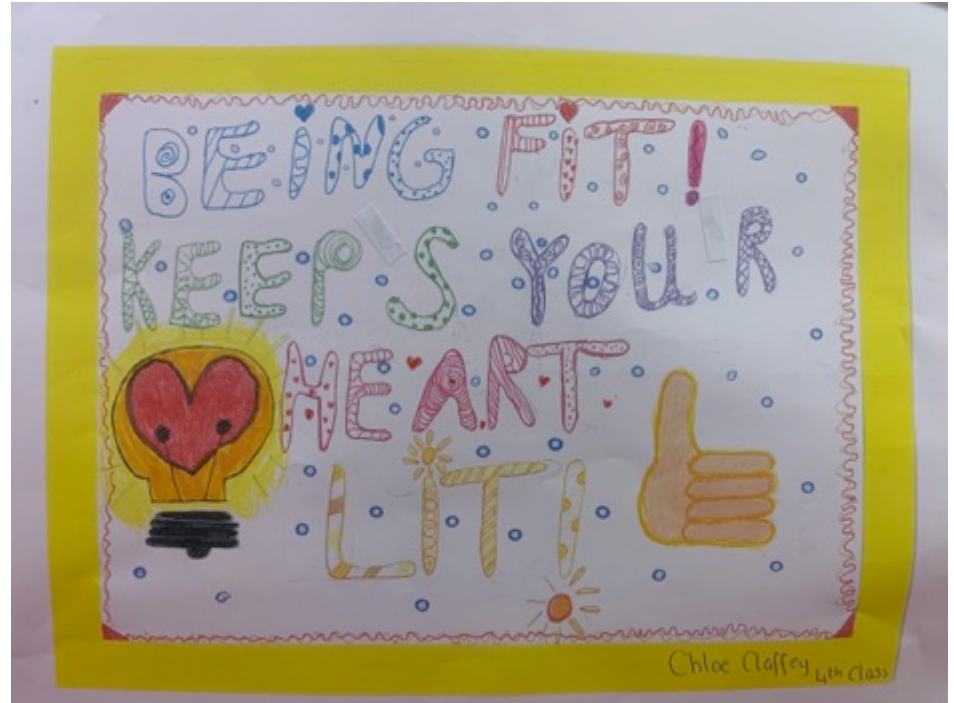 BEING FIT!
KEEPS YOUR
HEART
LIT!
Chloe Claffey 4th Class